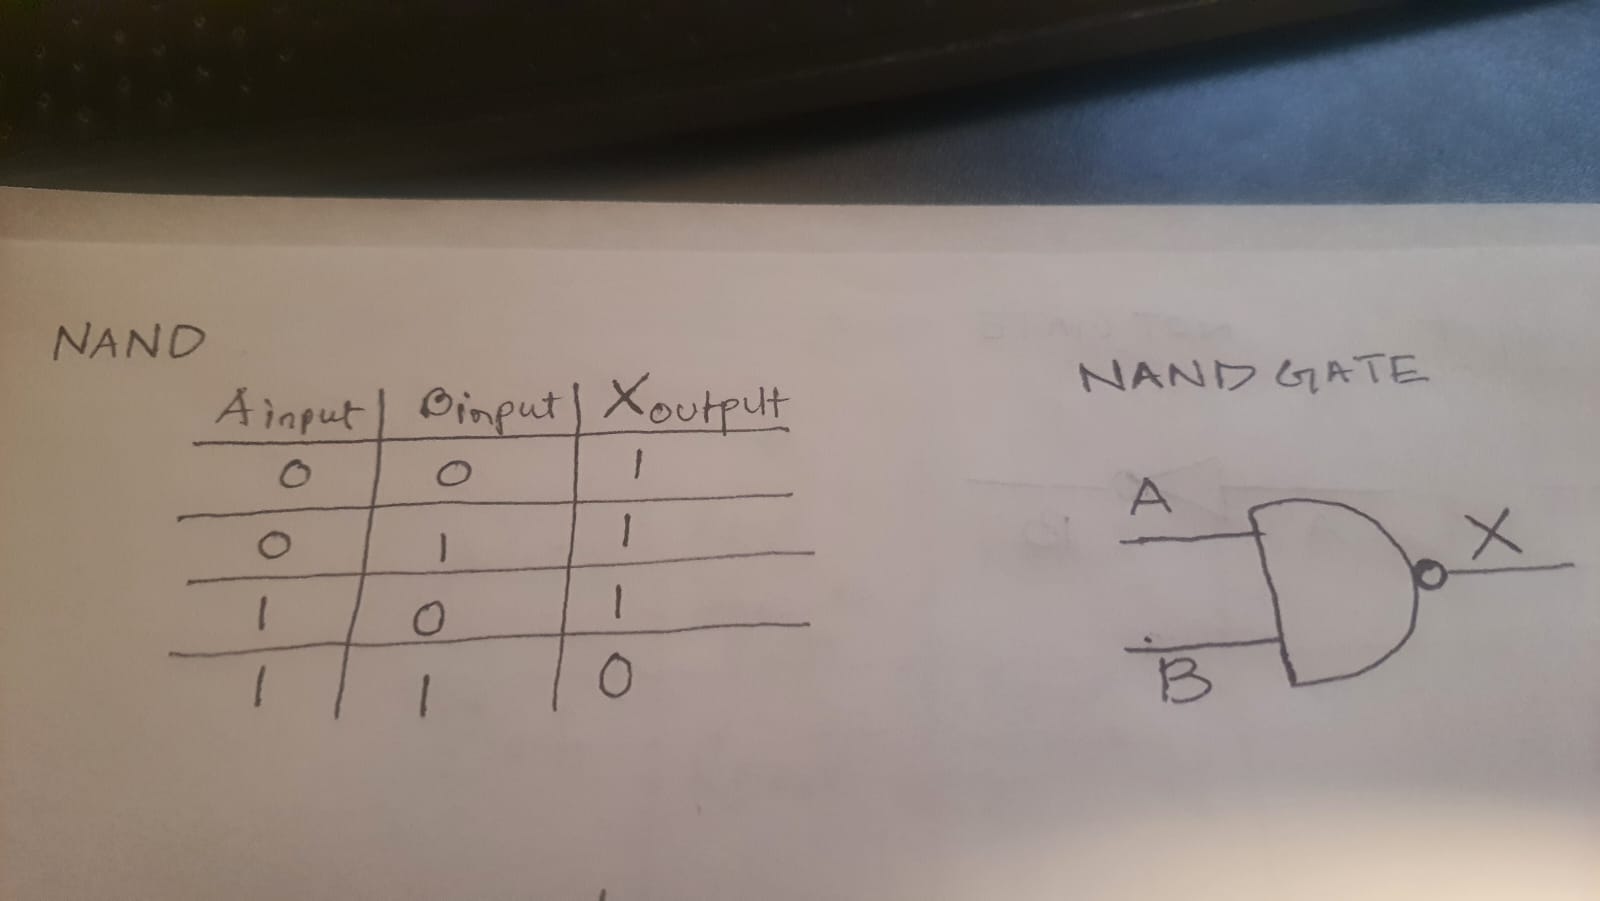 NAND
A input | B input | X output
0 | 0 | 1
0 | 1 | 1
1 | 0 | 1
1 | 1 | 0
NAND GATE
A
X
B